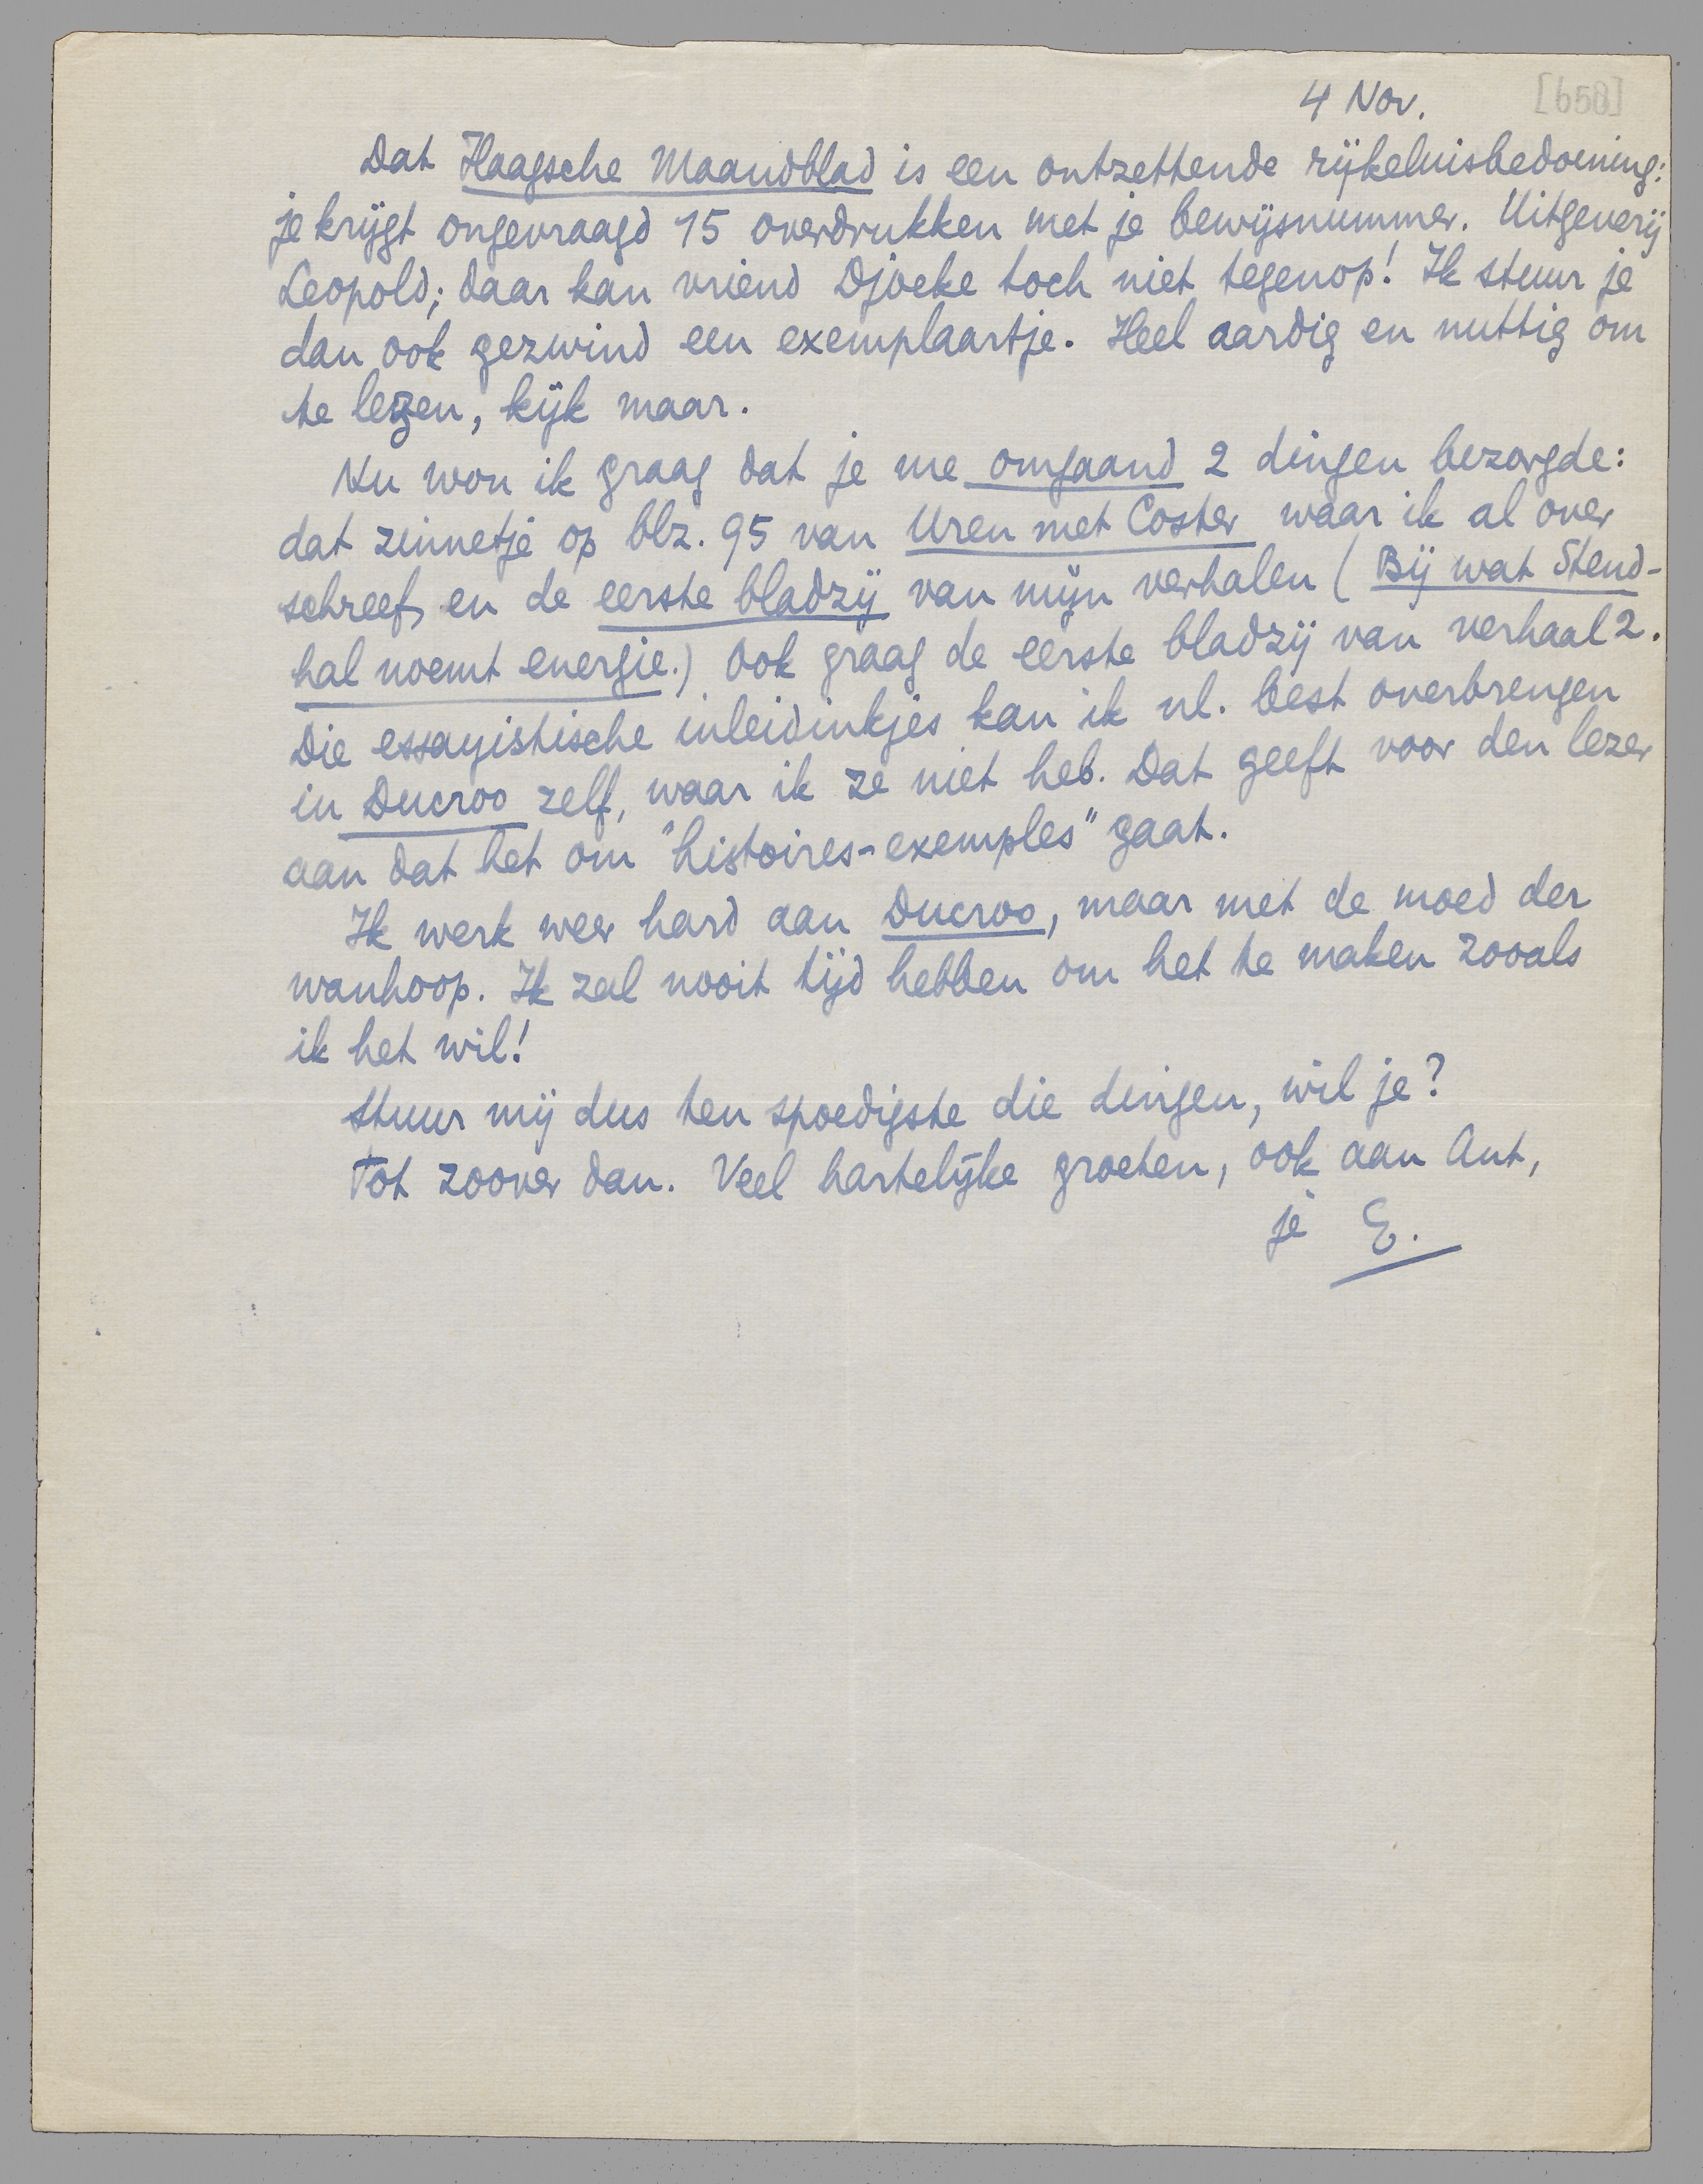 4 Nov. [658]
Dat Haagsche Maandblad is een ontzettende rijkeluisbedoening:
je krijgt ongevraagd 15 overdrukken met je bewijsnummer. Uitgeverij
Leopold; daar kan vriend Djoeke toch niet tegenop! Ik stuur je
dan ook gezwind een exemplaartje. Heel aardig en nuttig om
te lezen, kijk maar.
Nu wou ik graag dat je me omgaand 2 dingen bezorgde:
dat zinnetje op blz. 95 van Uren met Coster waar ik al over
schreef, en de eerste bladzij van mijn verhalen (Bij wat Stend-
hal noemt energie.) Ook graag de eerste bladzij van verhaal 2.
Die essayistische inleidinkjes kan ik nl. best overbrengen
in Ducroo zelf, waar ik ze niet heb. Dat geeft voor den lezer
aan dat het om "histoires-exemples" gaat.
Ik werk weer hard aan Ducroo, maar met de moed der
wanhoop. Ik zal nooit tijd hebben om het te maken zooals
ik het wil!
Stuur mij dus ten spoedigste die dingen, wil je?
Tot zoover dan. Veel hartelijke groeten, ook aan Ant,
je E.